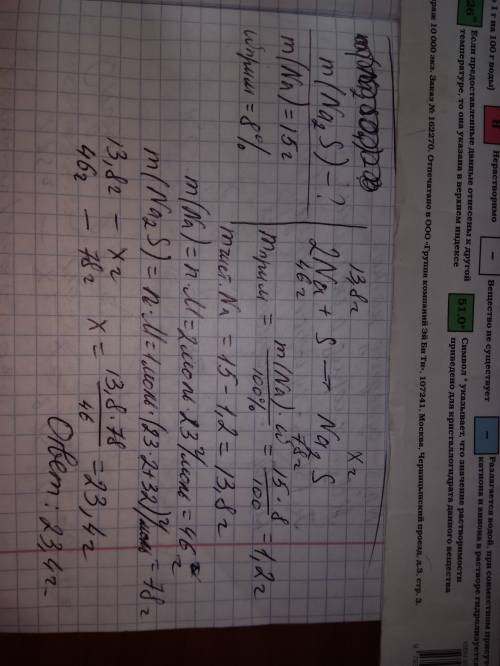 1 г на 100 г воды)
Н Нерастворимо
– Вещество не существует
– Разлагается водой, при совместном
катиона и аниона в растворе гидролизуется
26° Если предоставленные данные отнесены к другой
температуре, то она указана в верхнем индексе
51,0* Символ * указывает, что значение растворимости
приведено для кристаллогидрата данного вещества
10 000 экз. Заказ № 162270. Отпечатано в ООО «Группа компаний Эй Би Ти», 107241, Москва, Черницынский проезд, д.3, стр. 3.
m(Na₂S)=?
m(Na)=15г
ωприм=8%
13,8г xг
2Na + S → Na₂S
46г 78г
mприм = m(Na)·ω / 100% = 15·8 / 100 = 1,2г
mчист.Na = 15-1,2=13,8г
m(Na)=n·M=2моль·23г/моль=46г
m(Na₂S)=n·M=1моль·(23·2+32)г/моль=78г
13,8г – xг
46г – 78г x = 13,8·78 / 46 = 23,4г
Ответ: 23,4г